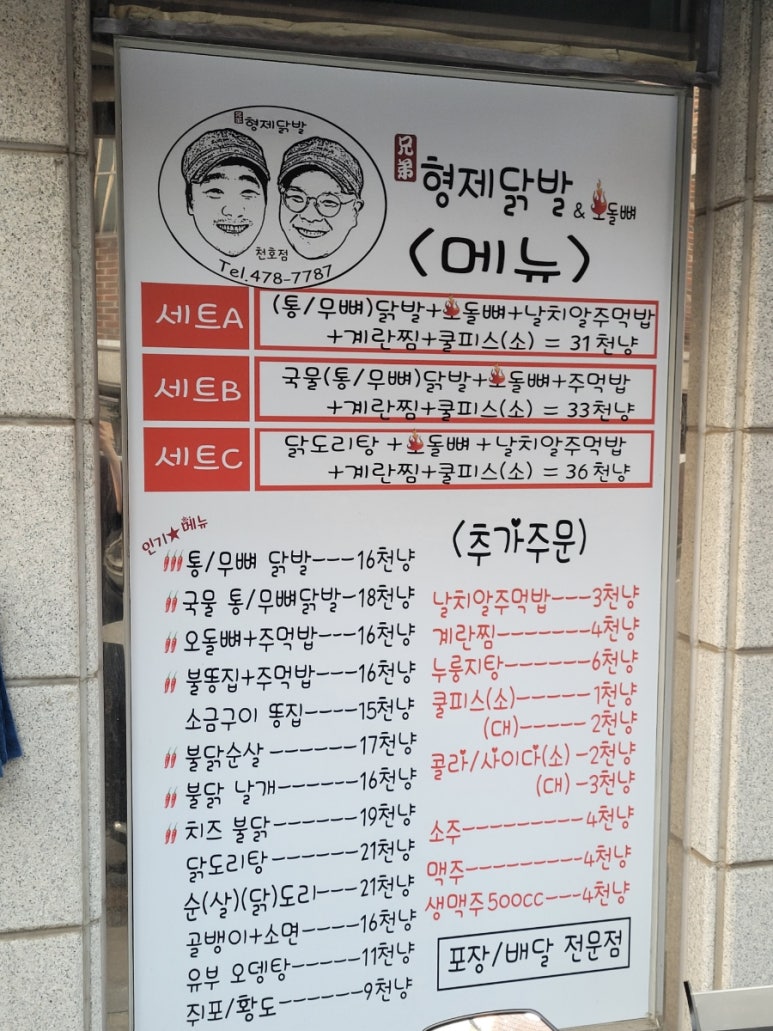 兄弟 형제닭발
천호점
Tel.478-7787
兄弟 형제닭발 & 오돌뼈
<메뉴>
세트A
(통/무뼈)닭발+오돌뼈+날치알주먹밥
+계란찜+쿨피스(소) = 31천냥
세트B
국물(통/무뼈)닭발+오돌뼈+주먹밥
+계란찜+쿨피스(소) = 33천냥
세트C
닭도리탕+오돌뼈+날치알주먹밥
+계란찜+쿨피스(소) = 36천냥
인기★메뉴
통/무뼈 닭발---16천냥
국물 통/무뼈닭발-18천냥
오돌뼈+주먹밥---16천냥
불똥집+주먹밥---16천냥
소금구이 똥집----15천냥
불닭순살-------17천냥
불닭 날개------16천냥
치즈 불닭------19천냥
닭도리탕-------21천냥
순(살)(닭)도리---21천냥
골뱅이+소면----16천냥
유부 오뎅탕-----11천냥
쥐포/황도------9천냥
(추가주문)
날치알주먹밥---3천냥
계란찜-------4천냥
누룽지탕------6천냥
쿨피스(소)-----1천냥
(대)-----2천냥
콜라/사이다(소)-2천냥
(대)-3천냥
소주---------4천냥
맥주---------4천냥
생맥주500cc---4천냥
포장/배달 전문점